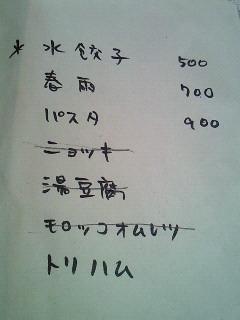 * 水餃子 500
春雨 700
パスタ 900
ニョッキ
湯豆腐
モロッコオムレツ
トリハム